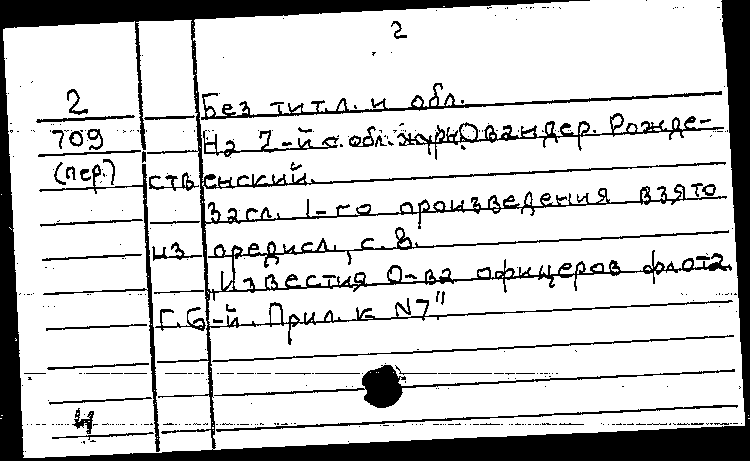 2
2 Без тит.л. и обл.
709 На 2-й с. обл. журн. Овандер. Рожде-
(пер.) ственский.
Загл. 1-го произведения взято
из предисл., с. 8.
„Известия О-ва офицеров флота.
Г. 6-й. Прил. к N7"
4